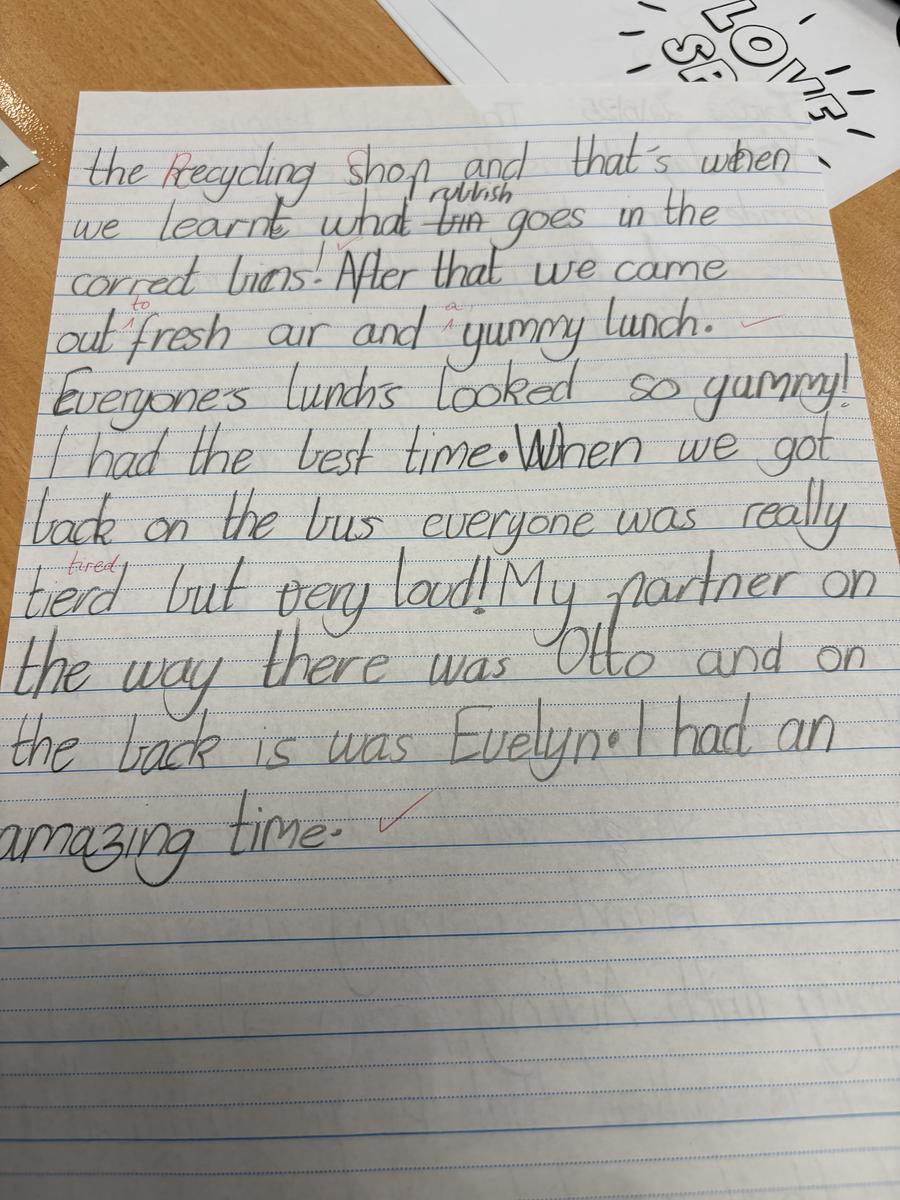 LOVE
SP
the Recycling Shop and that's when
rubbish
we learnt what bin goes in the
correct bins! After that we came
to a
out fresh air and yummy lunch.
Everyone's lunch's looked so yummy!
I had the best time. When we got
back on the bus everyone was really
tired
tierd but very loud! My partner on
the way there was Otto and on
the back is was Evelyn. I had an
amazing time.